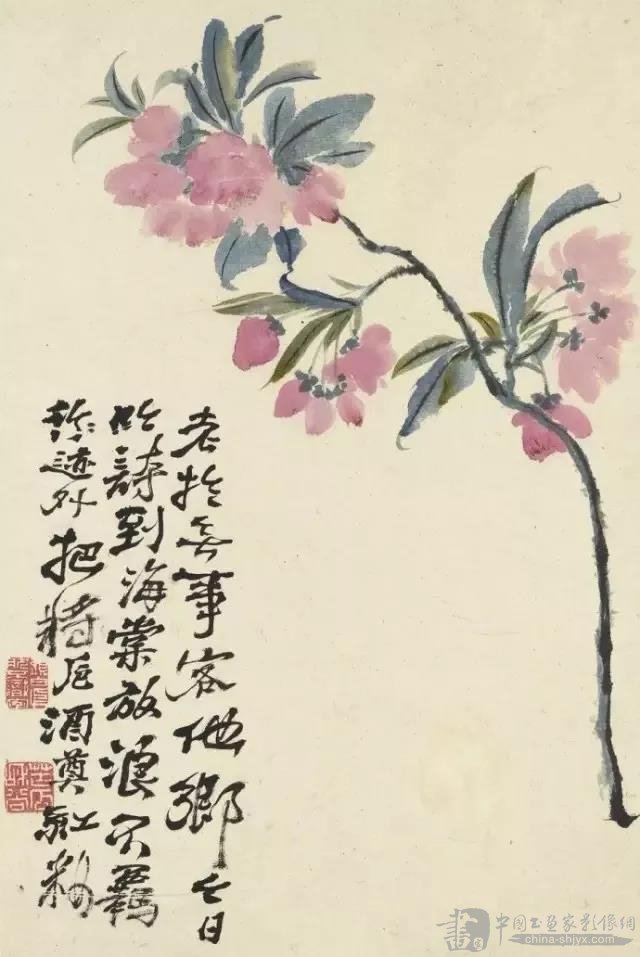 老於無事客他鄉今日
吟詩到海棠放浪不羈
形迹外把將卮酒奠紅粧
書
中国书画家影像網
china-shjyx.com